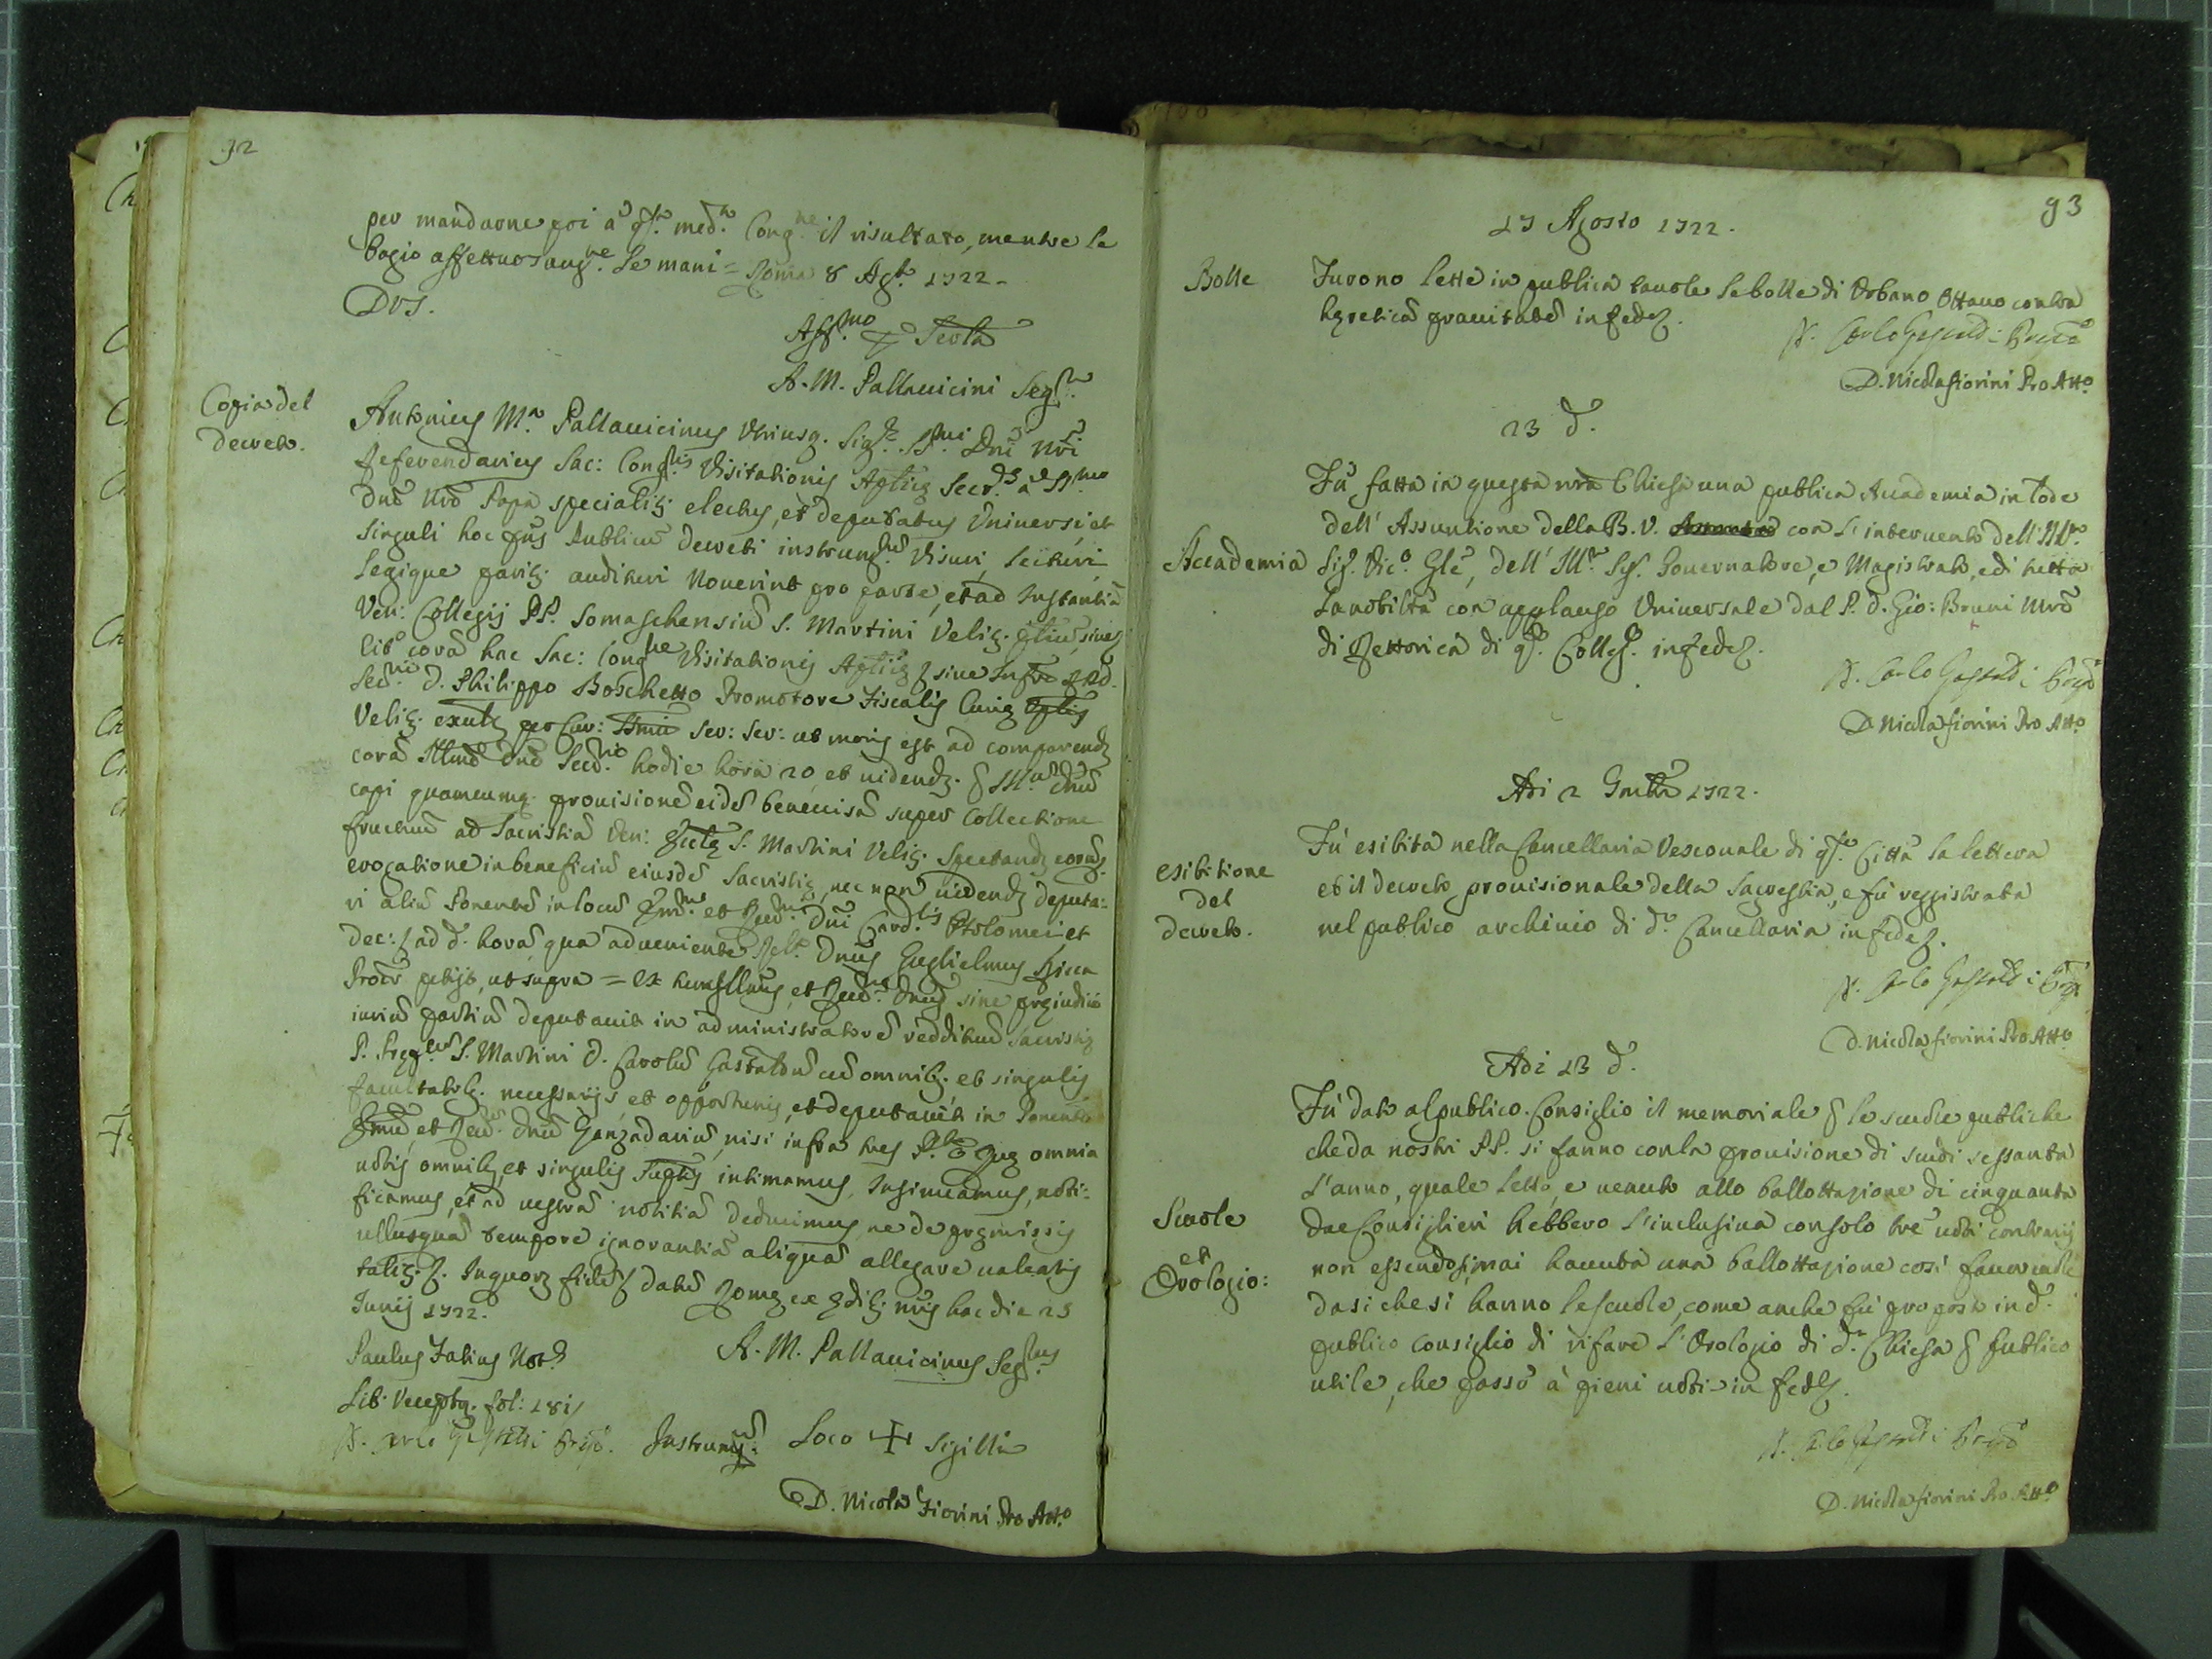 92
per mandarne poi a qsta. med.a Cong.ne il risultato, mentre le
bagio affettuosam.te le mani = Roma 8 Ag.to 1722 -
DVS.
Aff.mo
A. M. Pallavicini Seg.rio
Copia del
decreto.
Antonius M.a Pallavicinus Utriusq. Sig.re SS.mi Dni Nri
Referendarius Sac: Cong.nis Visitationis Aplicę Secr.s à SS.mo
Dno Nro Papa specialiter electus, et deputatus Universi, et
Singuli hoc pns publicũ decreti instrum.tũ Visuri, lecturi
legique pariter audituri Noverint pro parte, et ad Instantiã
Ven: Collegij PP. Somaschensiũ S. Martini Velit.
corã hac Sac: Cong.ne Visitationis Aplicę
D. Philippo Boschetto Promotore Fiscalis Curię
Velit. per Cur: Ser: Ser: ut moris est ad comparend
corã Illmo Dno Secr.io hodie hora 20 et uidend. p Ill.m Dnũ
capi quamcumq. provisionẽ eidẽ beneuisã super Collectione
fructuũ ad Sacristiã Ven: S. Martini Velit. Spectand eorũq.
erogatione in beneficiũ eiusdẽ Sacristię, nec non uidend deputa=
ri aliũ Ponentẽ in locũ Em.mi et Reu.mi Dni Card.lis Ptolomei et
dec: ad d. horã qua adueniente Dnus Guglielmus Ricca
Procr petijt, ut supra = et Reu.mus Dnus sine pręiudicio
iuriũ partiũ deputauit in administratorẽ reddituũ Sacristię
P. S. Martini D. Carolũ Gastaldũ cũ omnib. et singulis
facultatib. necessarijs, et opportunis, et deputauit in Ponentẽ
Emũ, et Reu. Dnũ Gonzadariũ, nisi infra tres omnia
uobis omnib. et singulis intimamus, Insinuamus, noti=
ficamus, et ad uestrã notitiã deducimus, ne de pręmissis
ullusquã tempore ignorantiã aliquã allegare ualeatis
In quorũ fidẽ datũ Romę ex ędib. nris hac die 25
Junij 1722.
Paulus Fatius Not.s
A. M. Pallavicinus Seg.rius
Lib. fol: 181
D. Carlo Gastaldi Prep.o Loco + Sigilli
D. Nicola Fiorini Pro Att.o
93
17 Agosto 1722.
Bolle
Furono lette in publica tauola le bolle di Urbano Ottauo contra
hęreticã prauitatẽ in fede.
D. Carlo Gastaldi Prep.o
D. Nicola Fiorini Pro Att.o
23 d.
Accademia
Fù fatta in questa nra Chiesa una publica Accademia in lode
dell' Assuntione della B. V. con l' interuento dell' Ill.mo
Sig. Vic.o Gle, dell' Ill.mo Sig. Gouernatore, e Magistrato, e di tutta
la nobiltà con applauso Uniuersale dal P. D. Gio: Bruni Mro
di Rettorica di qsto. Colleg.o in fede.
D. Carlo Gastaldi Prep.o
D. Nicola Fiorini Pro Att.o
Adi 2 9mbre 1722.
esibitione
del
decreto.
Fù esibita nella Cancellaria Vescouale di qsta. Città la lettera
et il decreto prouisionale della Sagrestia, e fù reggistrata
nel publico archiuio di d.a Cancellaria in fede.
D. Carlo Gastaldi Prep.o
D. Nicola Fiorini Pro Att.o
Adi 13 d.
Scuole
et
Orologio:
Fù dato al publico Consiglio il memoriale p le scuole publiche
che da nostri PP. si fanno con la prouisione di scudi sessanta
l'anno, quale letto, e uenuto allo ballottazione di cinquanta
due Consiglieri hebbero l'inclusiua con solo trè uoti contrarij
non essendosi mai hauuta una ballottazione così
da si che si hanno le scuole, come anche fù proposto in d.
publico consiglio di rifare l'Orologio di d.a Chiesa p publico
utile, che passò à pieni uoti in fede.
D. Carlo Gastaldi Prep.o
D. Nicola Fiorini Pro Att.o